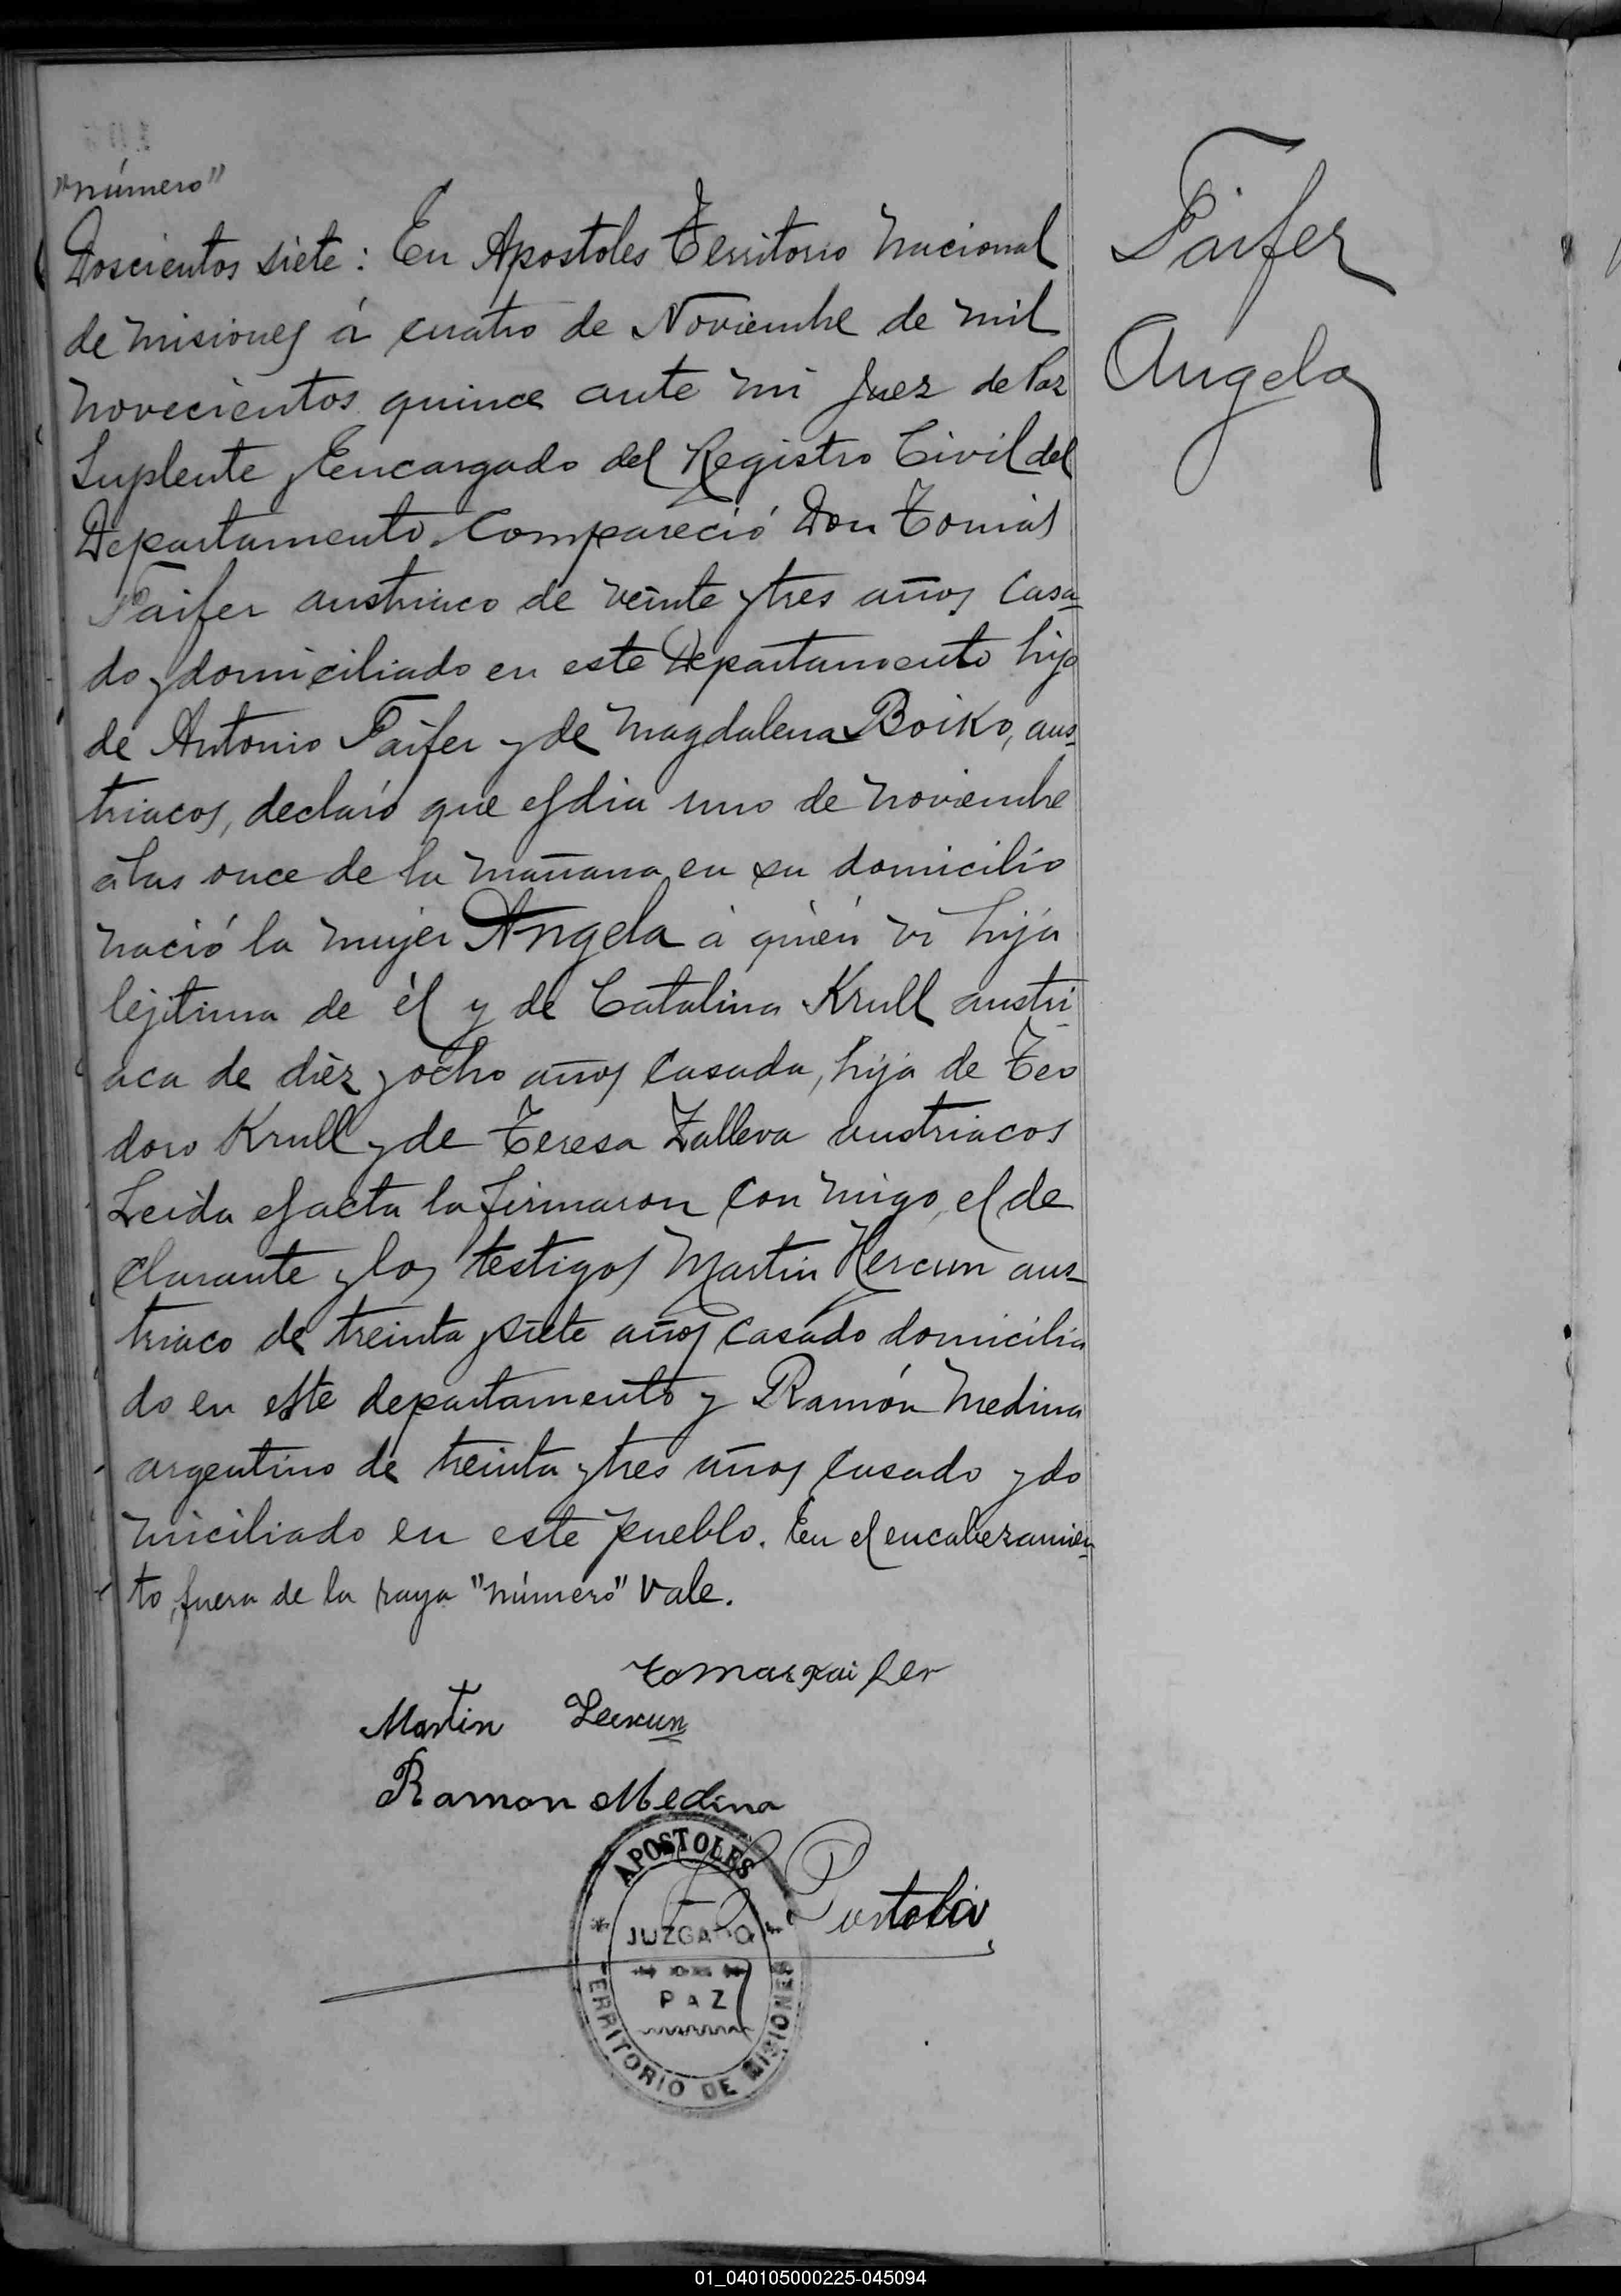 "número"
Doscientos siete: En Apostoles Territorio Nacional
de Misiones á cuatro de Noviembre de mil
novecientos quince ante mi Juez de Paz
Suplente y Encargado del Registro Civil del
Departamento. Compareció Don Tomás
Paifer austriaco de veinte y tres años casa
do y domiciliado en este Departamento hijo
de Antonio Paifer y de Magdalena Boiko, aus
triacos, declaró que el dia uno de noviembre
á las once de la mañana en su domicilio
nació la mujer Angela á quién vi hija
lejitima de él y de Catalina Krull austri
aca de diez y ocho años casada, hija de Teo
doro Krull y de Teresa Zalleva austriacos
Leida el acta la firmaron con migo, el de
clarante y los testigos Martin Hercun aus
triaco de treinta y siete años casado domicilia
do en este departamento y Ramón Medina
argentino de treinta y tres años casado y do
miciliado en este pueblo. En el encabezamien
to, fuera de la raya "número" vale.
Paifer
Angela
tomas pai fer
Martin
Ramon Medina
APOSTOLES
JUZGADO
PAZ
TERRITORIO DE MISIONES
01_040105000225-045094